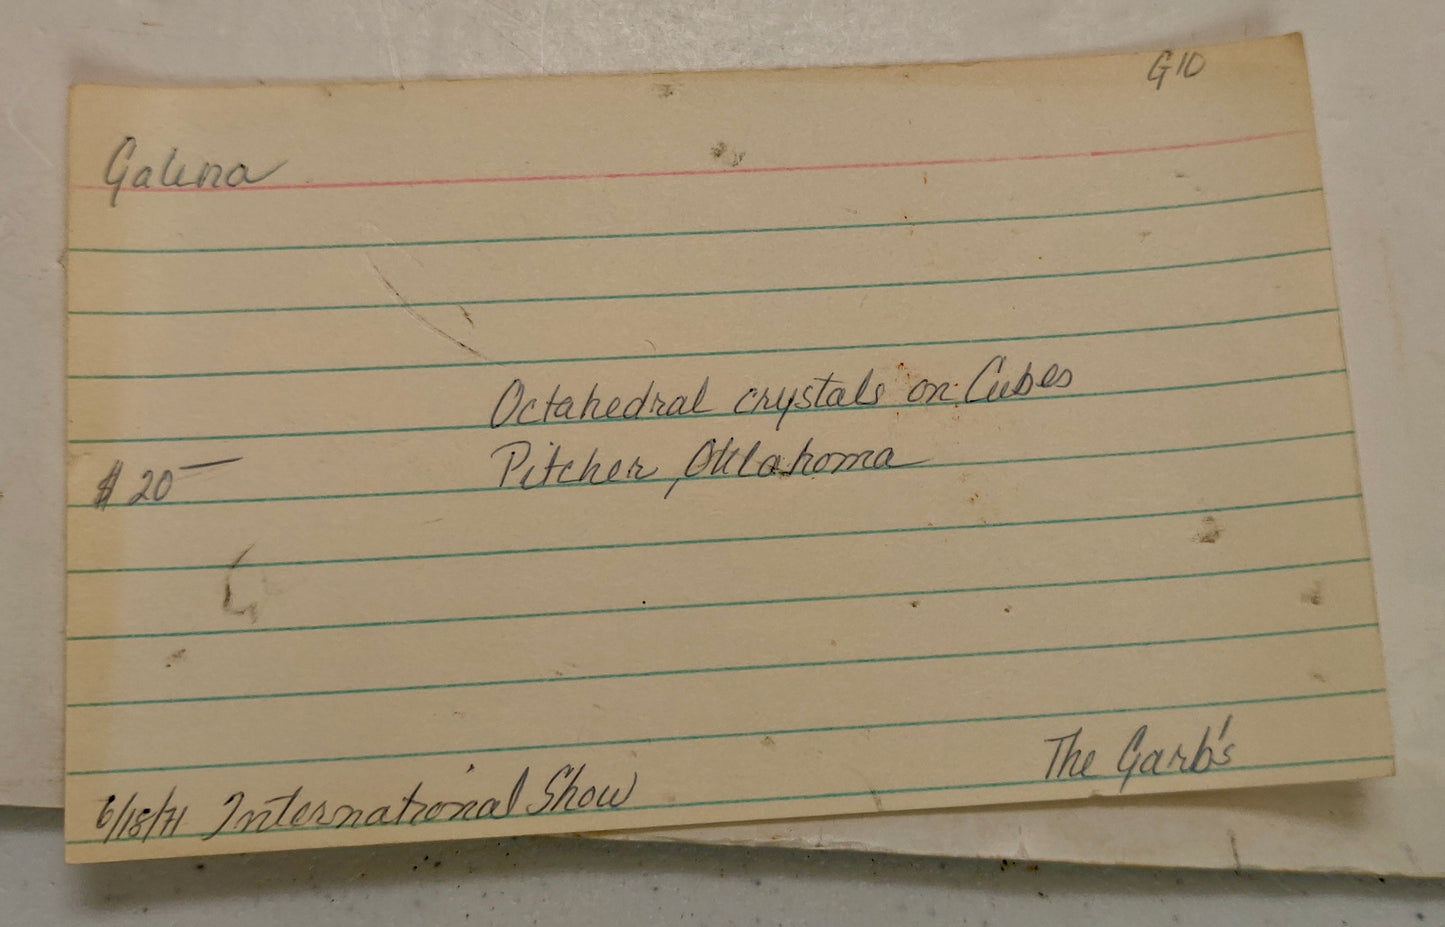 G10
Galena
Octahedral crystals on Cubes
$20— Pitcher, Oklahoma
The Garb's
6/18/71 International Show